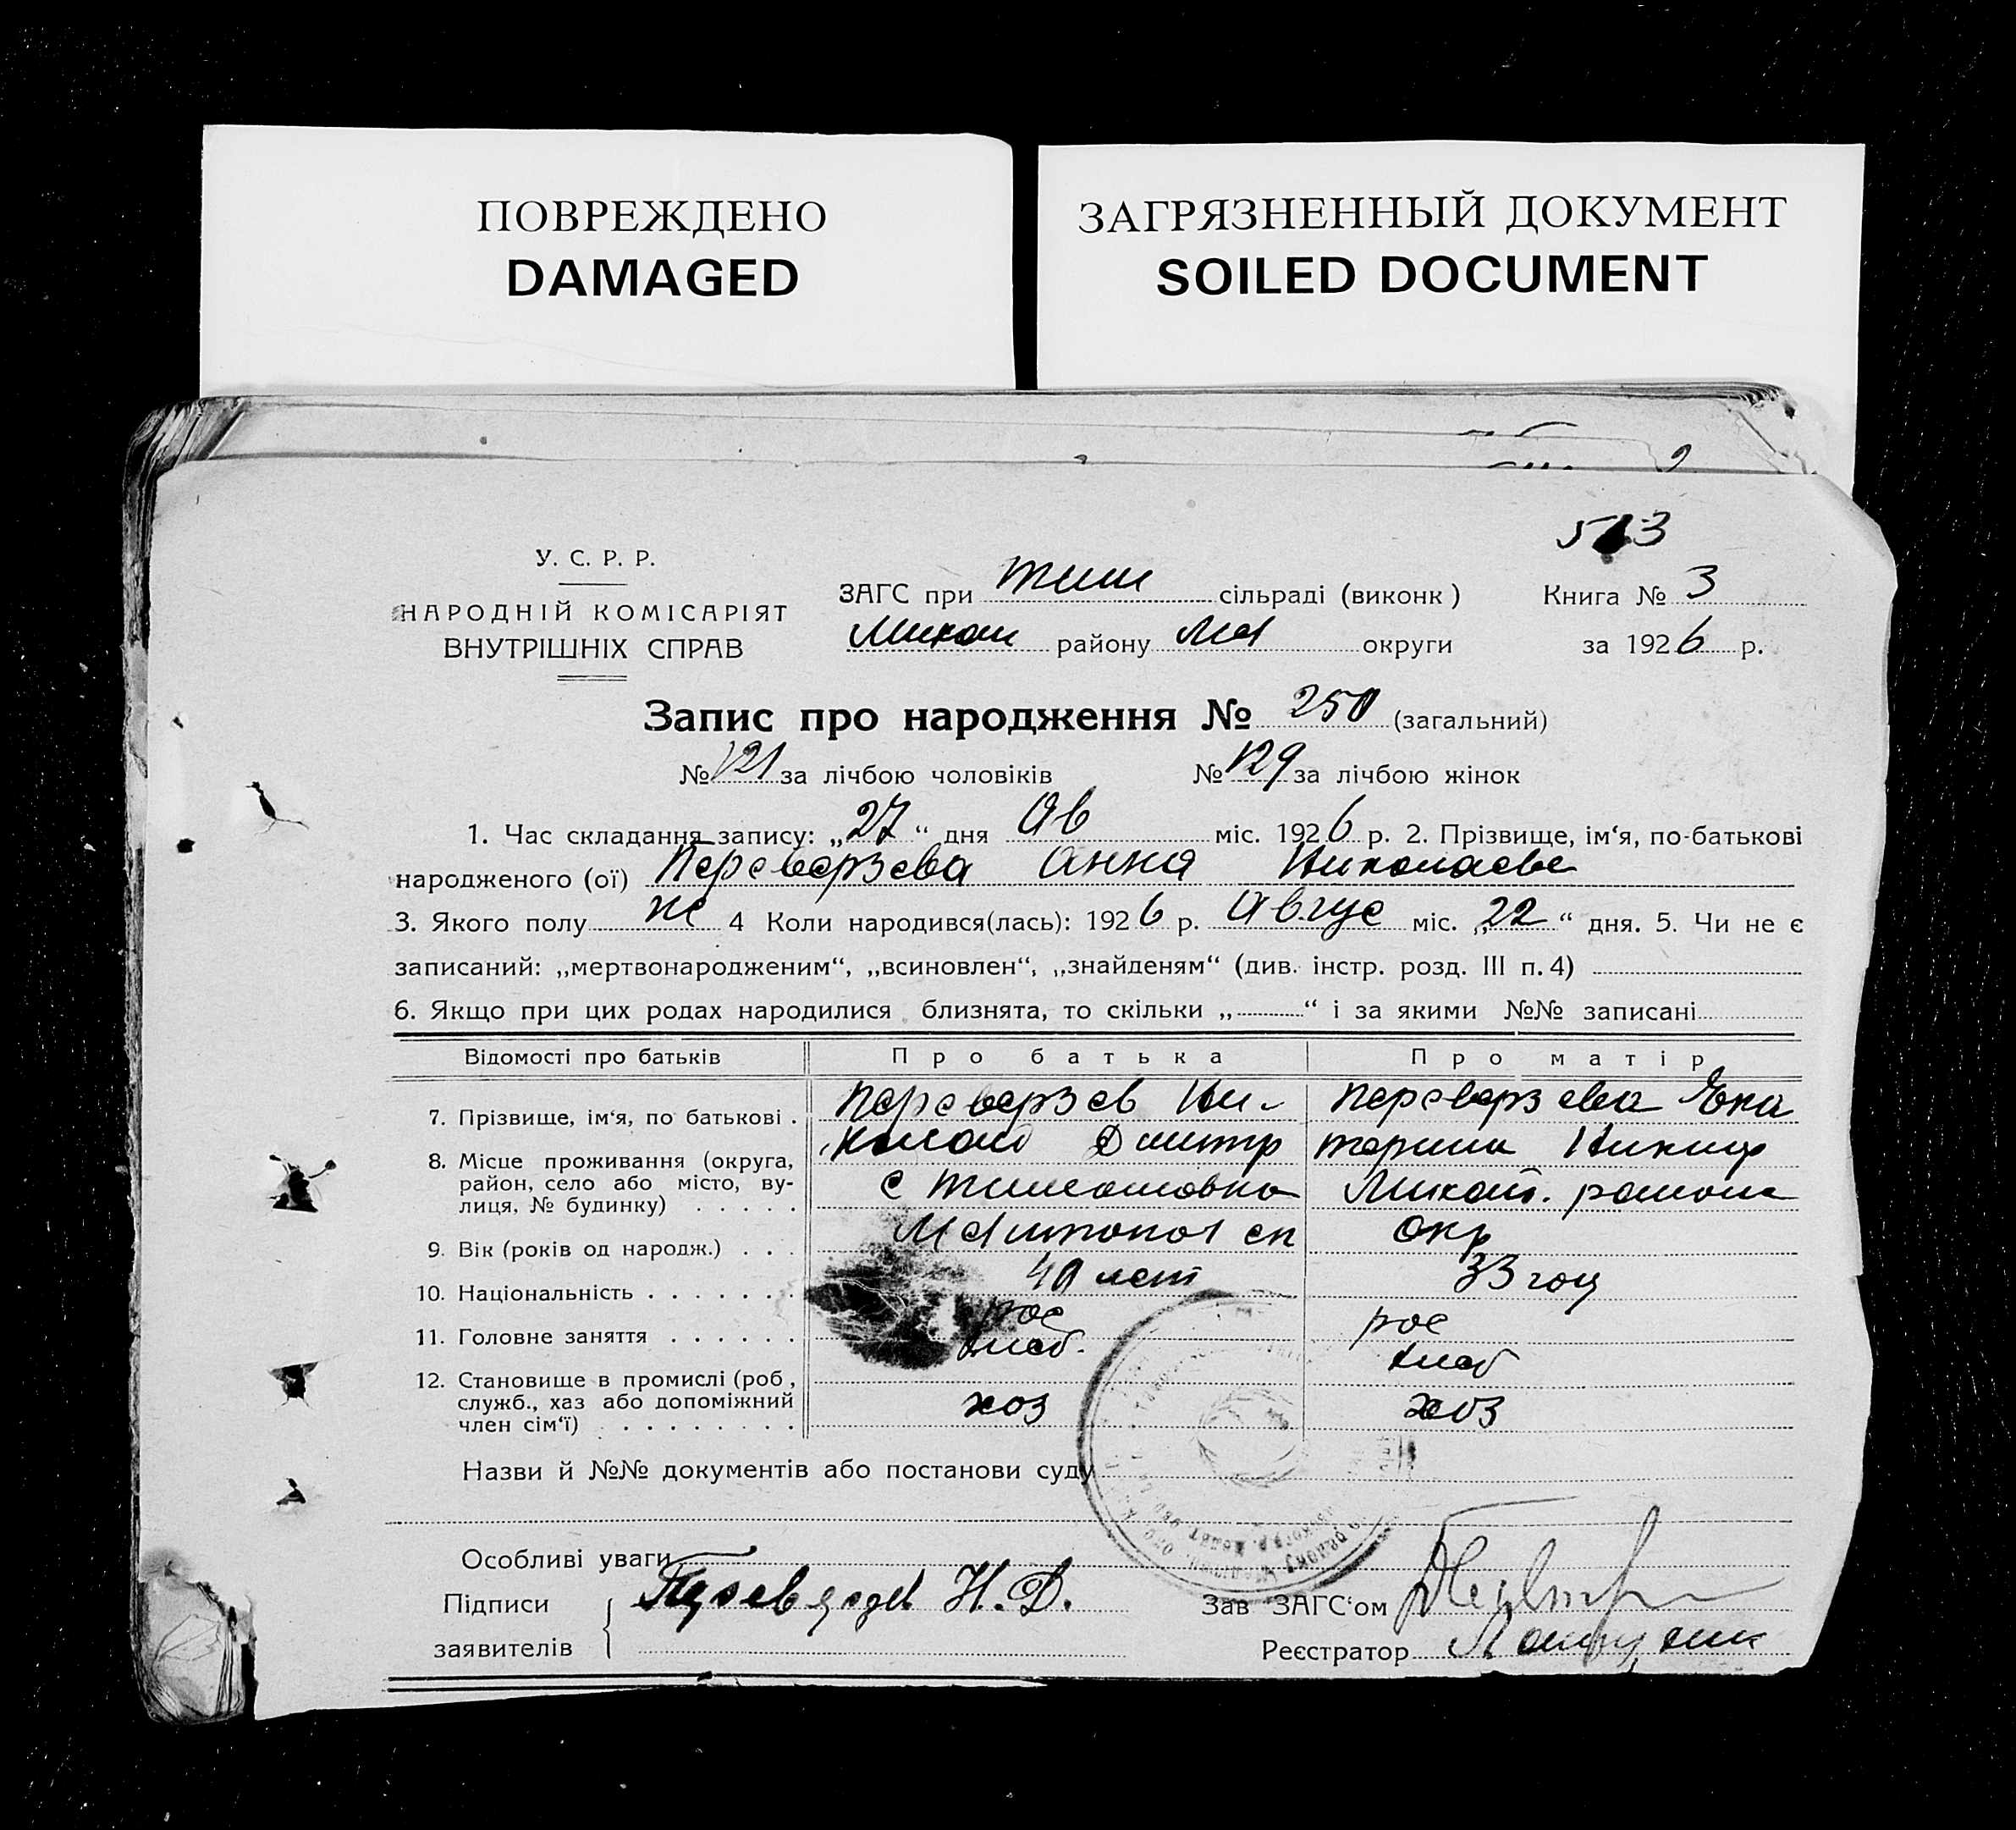 ПОВРЕЖДЕНО
DAMAGED
ЗАГРЯЗНЕННЫЙ ДОКУМЕНТ
SOILED DOCUMENT
513
У. С. Р. Р.
НАРОДНІЙ КОМІСАРІЯТ
ВНУТРІШНІХ СПРАВ
ЗАГС при Тим сільраді (виконк )
Михай району Мел округи
Книга № 3
за 1926 р.
Запис про народження № 250 (загальний)
№ 121 за лічбою чоловіків № 129 за лічбою жінок
1. Час складання запису: „27“ дня Ав міс. 1926 р. 2. Прізвище, ім‘я, по-батькові
народженого (ої) Переверзева Анна Николаевн
3. Якого полу ж 4 Коли народився(лась): 1926 р. Авгус міс. „22“ дня. 5. Чи не є
записаний: „мертвонародженим“, „всиновлен“, „знайденям“ (див. інстр. розд. III п. 4)
6. Якщо при цих родах народилися близнята, то скільки „ “ і за якими №№ записані
Відомості про батьків Про батька Про матір
7. Прізвище, ім‘я, по батькові . Переверзев Ни- Переверзева Ека
колай Дмитр терина Никиф
8. Місце проживання (округа,
район, село або місто, ву-
лиця, № будинку) . . . . .
с Тимошовка Михай. района
Мелитопол ск окр
9. Вік (років од народж.) . . . 40 лет 33 год
10. Національність . . . . . . . рос рос
11. Головне заняття . . . . . . хлеб. хлеб
12. Становище в промислі (роб ,
служб., хаз або допоміжний
член сім‘ї) . . . . . . . . .
хоз хоз
Назви й №№ документів або постанови суду
Особливі уваги
Підписи
заявителів
Переверзев Н. Д.
Зав ЗАГС‘ом
Реєстратор